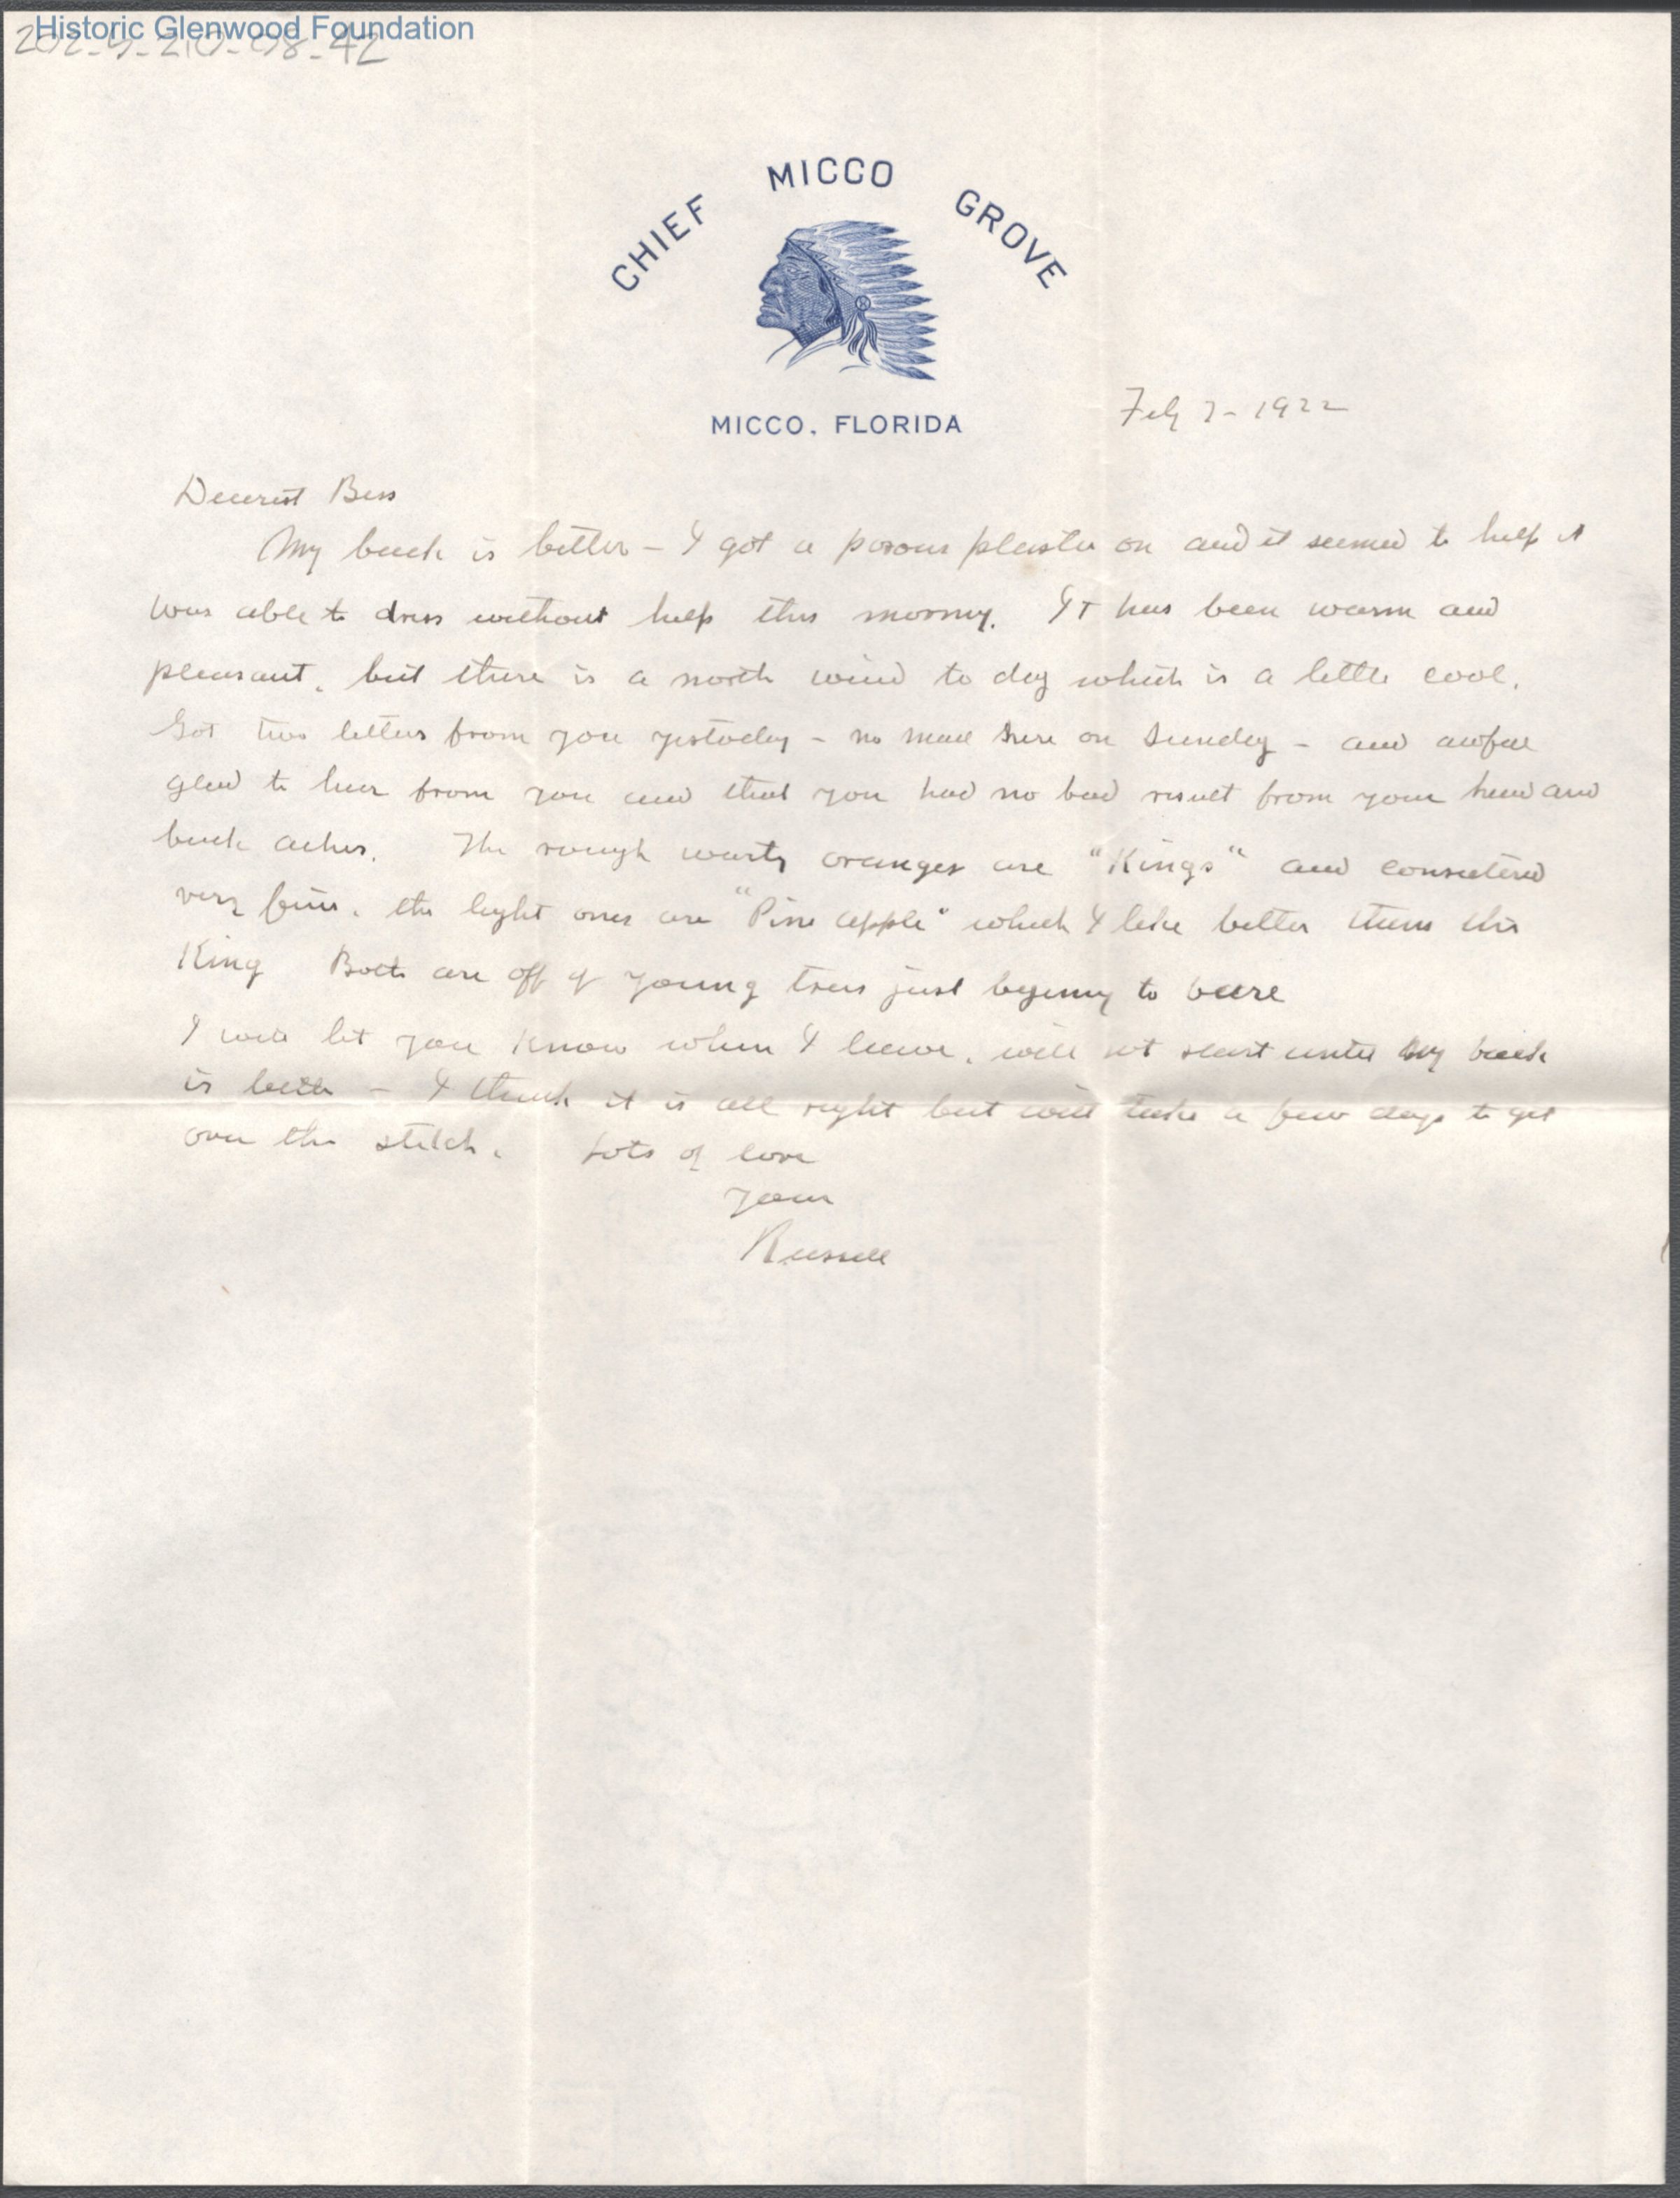 Historic Glenwood Foundation
202-5-210-08-42
CHIEF MICCO GROVE
MICCO, FLORIDA
Feby 7-1922
Dearest Bess
My back is better – I got a porous plaster on and it seemed to help it
was able to dress without help this morning. It has been warm and
pleasant, but there is a north wind to day which is a little cool.
Got two letters from you yestoday – no mail here on Sunday – and awful
glad to hear from you and that you had no bad result from your head and
back aches. The rough warty oranges are "Kings" and considered
very fine. the light ones are "Pine apple" which I like better than the
King Both are off of young trees just beginng to beare
I will let you know when I leave. will not start until my back
is better – I think it is all right but will take a few days to get
over the stitch. Lots of love
your
Russell